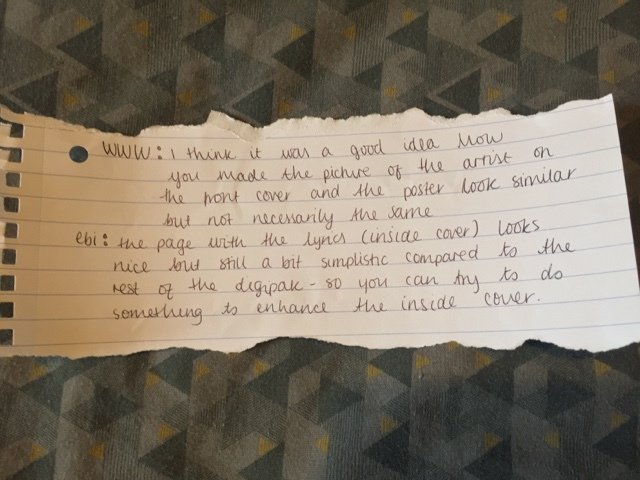 WWW: I think it was a good idea how
you made the picture of the artist on
the front cover and the poster look similar
but not necessarily the same
ebi: the page with the lyrics (inside cover) looks
nice but still a bit simplistic compared to the
rest of the digipak - so you can try to do
something to enhance the inside cover.